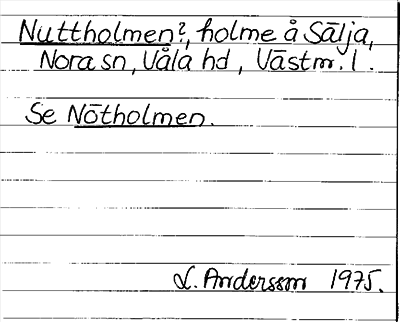 Nuttholmen?, holme å Sälja,
Nora sn, Våla hd, Västm. l.
Se Nötholmen.
L. Andersson 1975.